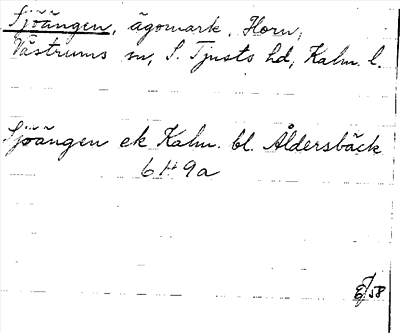 Sjöängen, ägomark, Horn,
Västrums sn, S. Tjusts hd, Kalm. l.
Sjöängen ek Kalm. bl. Åldersbäck
6 H 9a
/58